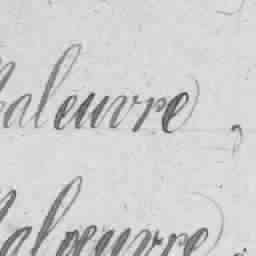 aleuvre,
alœuvre.